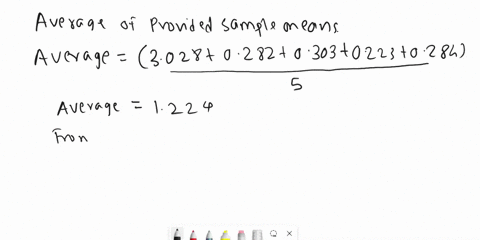 Average of Provided Sample means
Average = (3.028+ 0.282+ 0.303+0223+0.284)
5
Average = 1.224
From